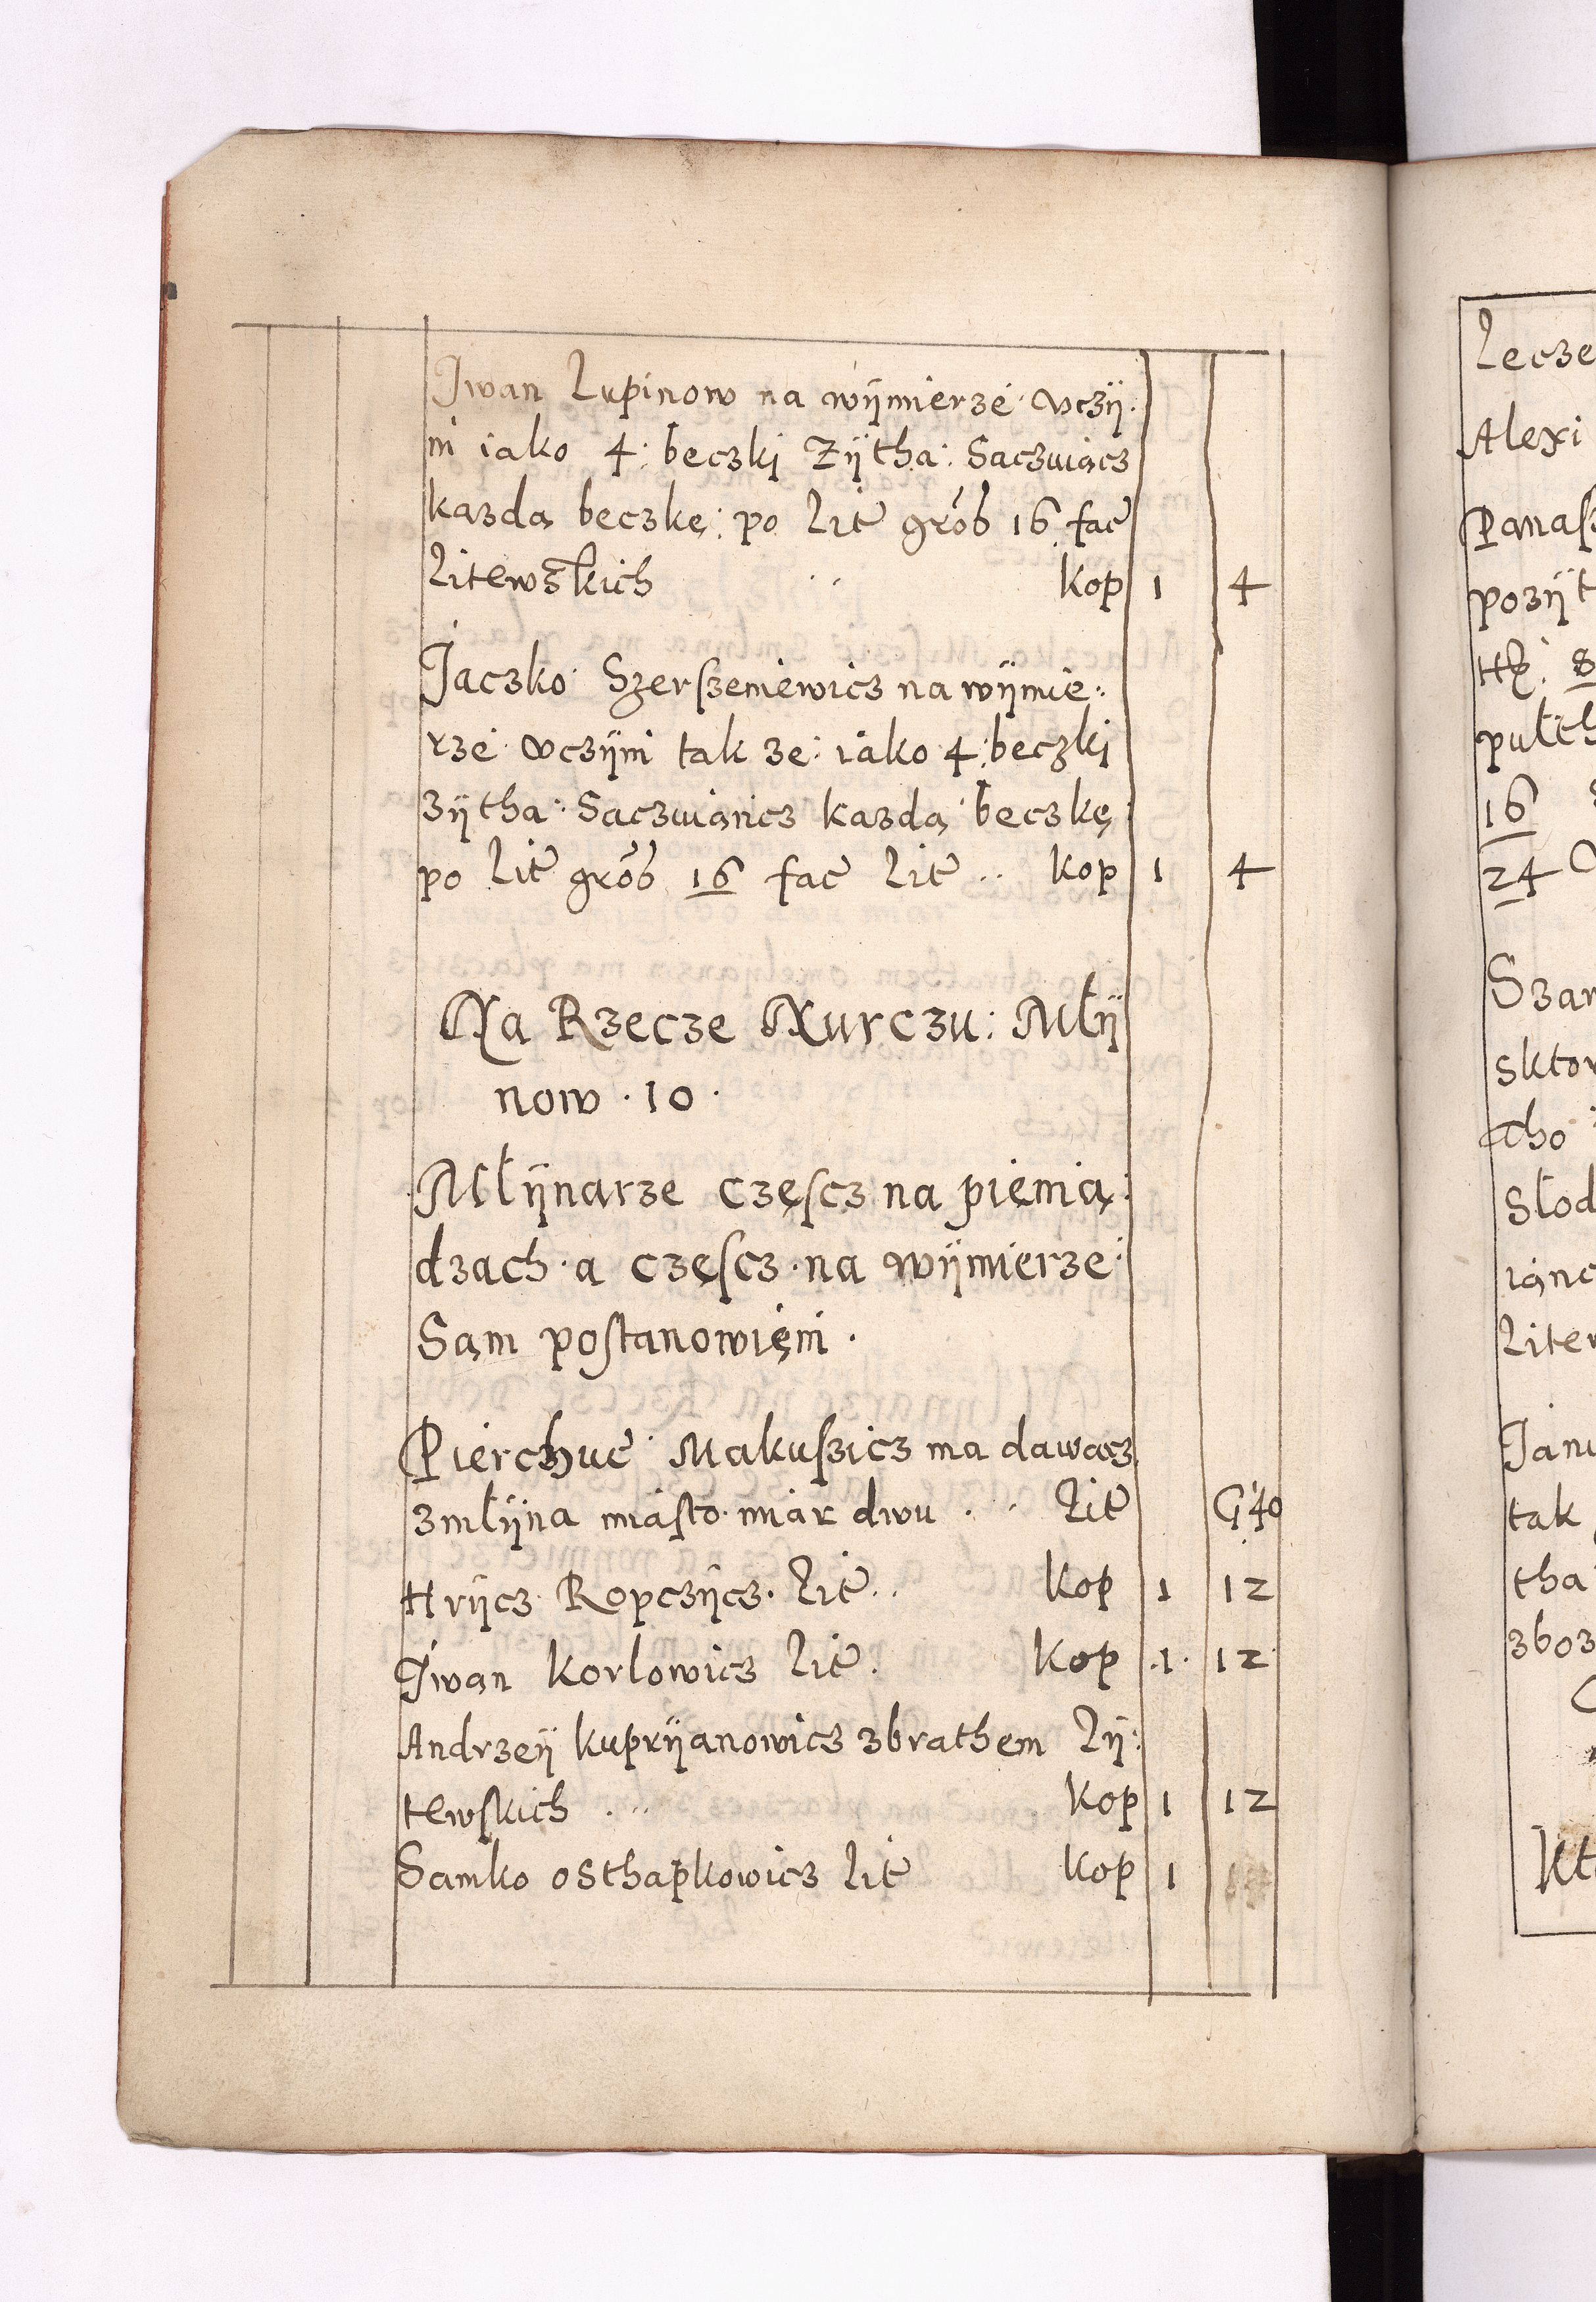 Iwan Lupinow na wÿmierze vczÿ:
ni iako 4: beczki Zÿtha: Saczuiącz
kazdą beczkę: po Lit grosz 16 fac
Litewskich kop 1 4
Jaczko Szerszeniewicz na wÿmie:
rze vczÿni tak ze: iako 4: beczki
zÿtha: Saczuiąncz kazdą beczkę
po Lit grosz 16 fac Lit .. kop 1 4
Na Rzecze Nurczu: Młÿ
now . 10 .
Młÿnarze częscz na pienią:
dzach . a częscz . na wÿmierze:
Sąm postanowięni .
Pierchue Makuszicz ma dawacz
zmłÿna miasto miar dwu . .. Lit G 40
Hrÿcz Ropczÿcz . Lit .. kop 1 12
Iwan Korlowicz Lit . kop .1. 12
Andrzeÿ kuprÿanowicz zbrathem Lÿ:
tewskich . ... kop 1 12
Samko Osthapkowicz Lit kop 1
Lecze
Alexi
Panas
pozÿt
16
24
Szar
sktor
tho
Słod
iąnc
Liter
Janu
tak
tha
zboz
kt